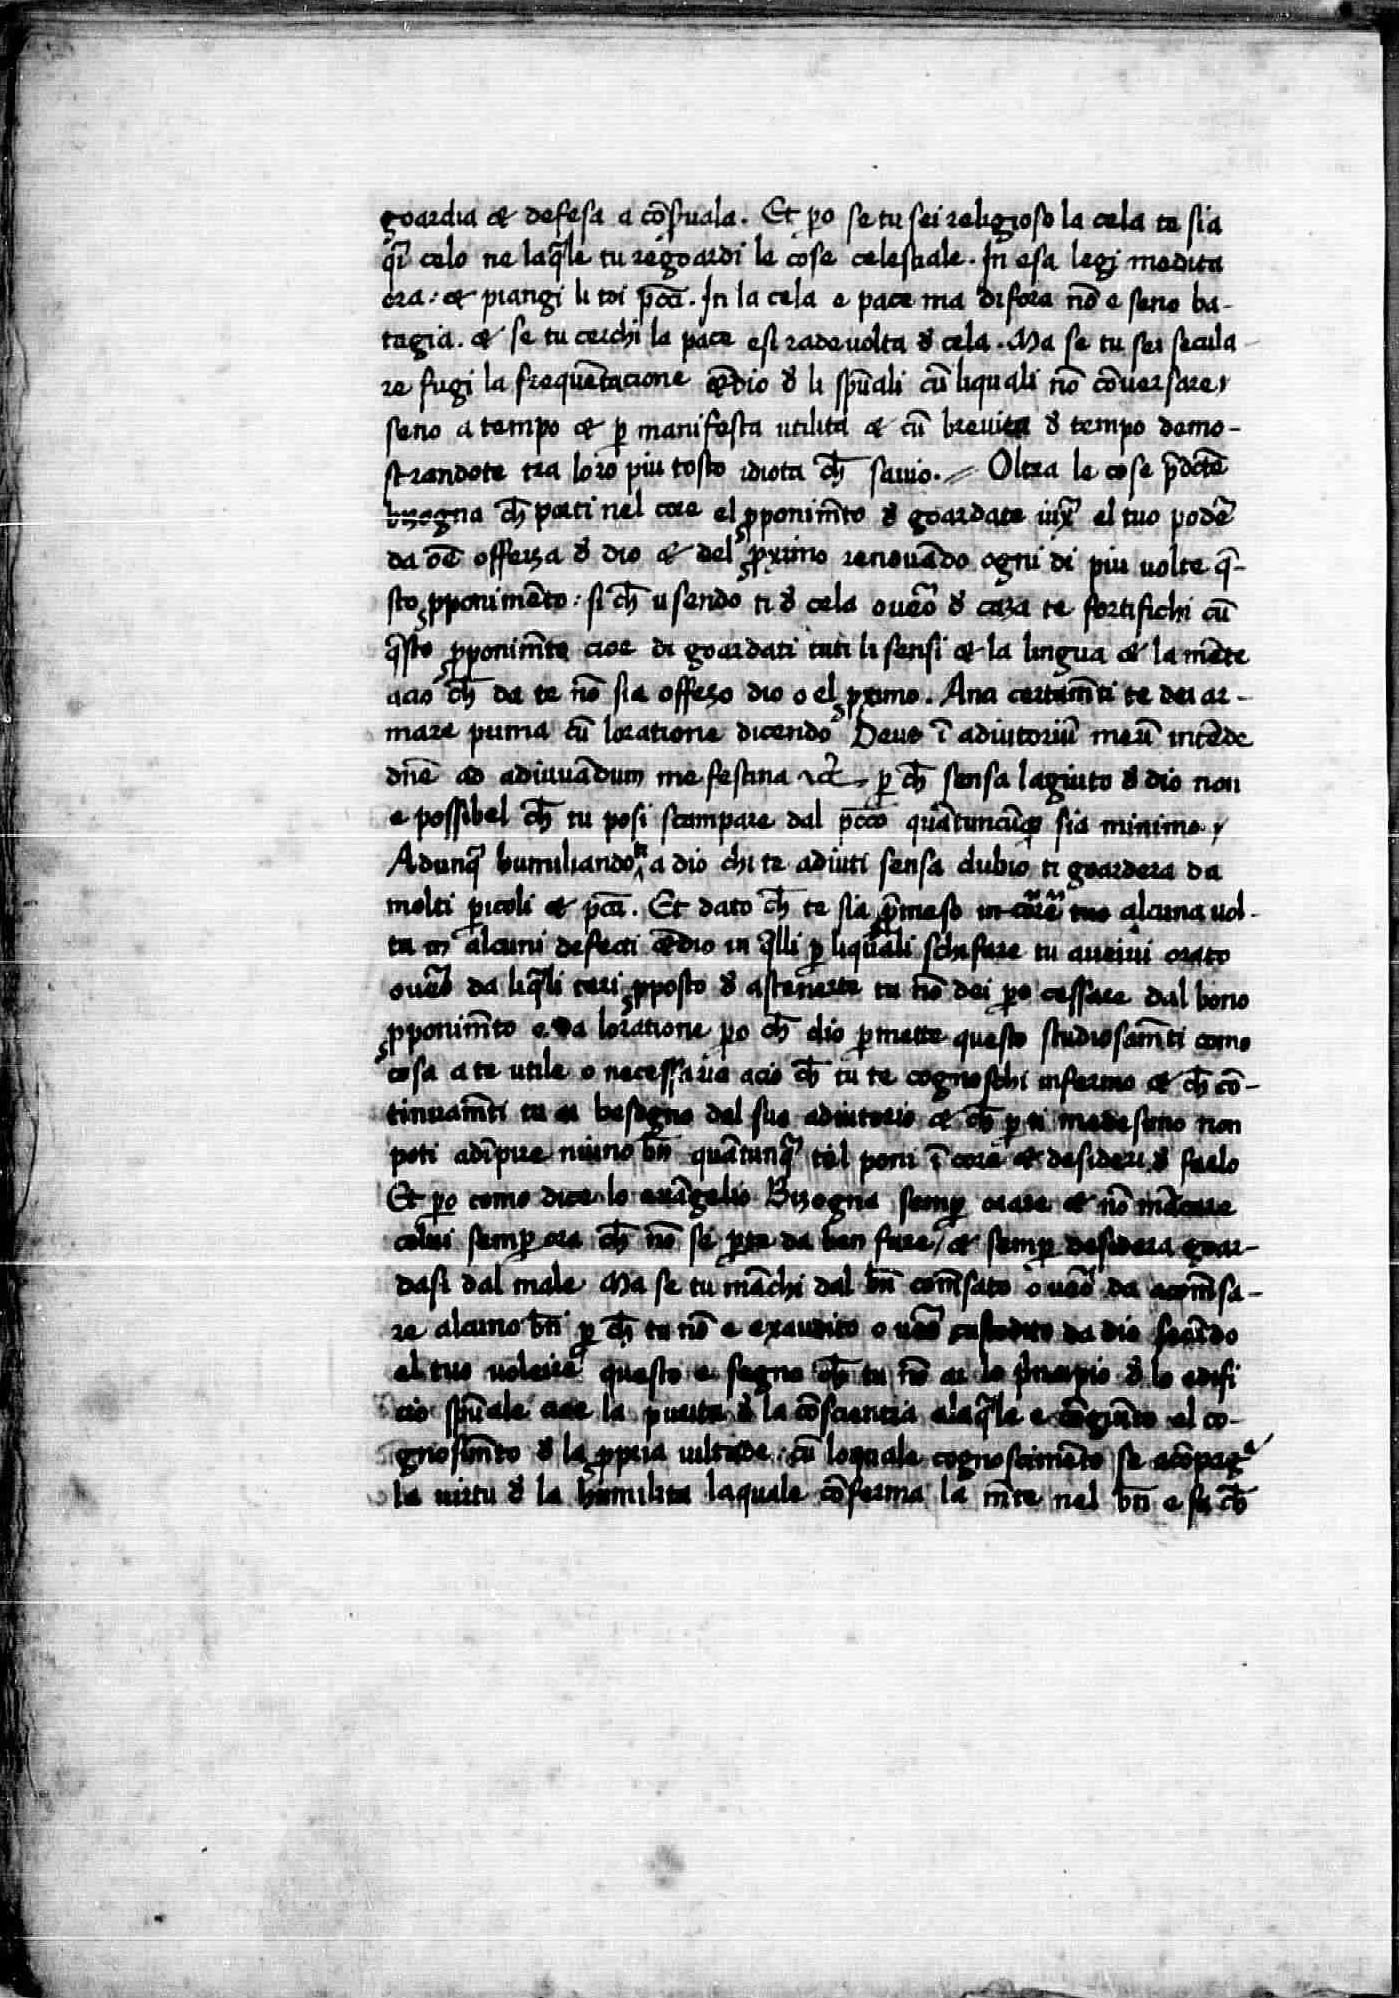 goardia et defesa a cōseruala. Et ꝑo se tu sei religioso la cela te sia
q̄si celo ne laq̄le tu regoardi le cose celestiale. In esa legi medita
ora: et piangi li toi pccā. In la cela e pace ma difora nō e seno ba-
tagia. et se tu cerchi la pace esi rade uolta đ cela. Ma se tu sei secula-
re fugi la frequētacione eđdio đ li spūali cū liquali nō cōuersare,
seno a tempo et ꝑ manifesta utilita et cū breuita đ tempo demo-
strandote tra loro piu tosto idiota ch̄ sauio. Oltra le cose p̄docte
bisogna ch̄ porti nel core el ꝓponimēto đ goardate iux̄ el tuo podē
da oē offeza đ dio et del ꝓximo renouādo ogni di piu uolte q̄-
sto ꝓponimēto: si ch̄ usendo ti đ cela oueō đ caza te fortifichi cū
q̄sto ꝓponimēto cioe di goardati tuti li sensi et la lingua et la mēte
acio ch̄ da te nō sia offezo dio o el ꝓximo. Ana certamēti te dei ar-
mare prima cū loratione dicendo Deus ī adiutoriū meū intēde
dn̄e ad adiuuādum me festina et c̄. ꝑ ch̄ sensa lagiuto đ dio non
e possibel ch̄ tu posi scampare dal pccō quātuncūq̄ sia minimo,
Adunq̄ humiliando te a dio chi te adiuti sensa dubio ti goardera da
molti ꝑicoli et pccā. Et dato ch̄ te sia ꝑmeso in core tuo alcuna uol-
ta in alcuni defecti eđdio in q̄lli ꝑ liquali schifare tu aueiui orato
oueō da liq̄li teri ꝓposto đ astenerte tu nō dei ꝑo cessare dal bono
ꝓponimēto e da loratione ꝑo ch̄ dio ꝑmette questo studiosamēti como
cosa a te utile o necessaria acio ch̄ tu te cognoschi infermo et ch̄ cō-
tinuamēti tu ai besogno del suo adiutorio et ch̄ ꝑ ti medesimo non
poti adīpire niuno bn̄ quātunq̄ tel poni ī core et desideri đ farlo
Et ꝑo como dice lo euāgelio Bizogna semꝑ orare et nō mācare
colui semꝑ ora ch̄ nō se ꝑte da ben fare, et semꝑ desidera goar-
dasi dal male Ma se tu māchi dal bn̄ comēsato oueō da acomēsa-
re alcuno bn̄ ꝑ ch̄ tu nō e exaudito oueō custodito da dio secūdo
el tuo uoleire questo e segno ch̄ tu nō ai lo p̄ncipio đ lo edifi
cio spūale cioe la purita đ la cōscientia alaq̄le e cōgiūto el co-
gnosimēto đ la ꝓpria uiltade cū loquale cognoscimēto se acōpagᵃ
la uirtu đ la humilita laquale cōferma la mēte nel bn̄ e fa ch̄